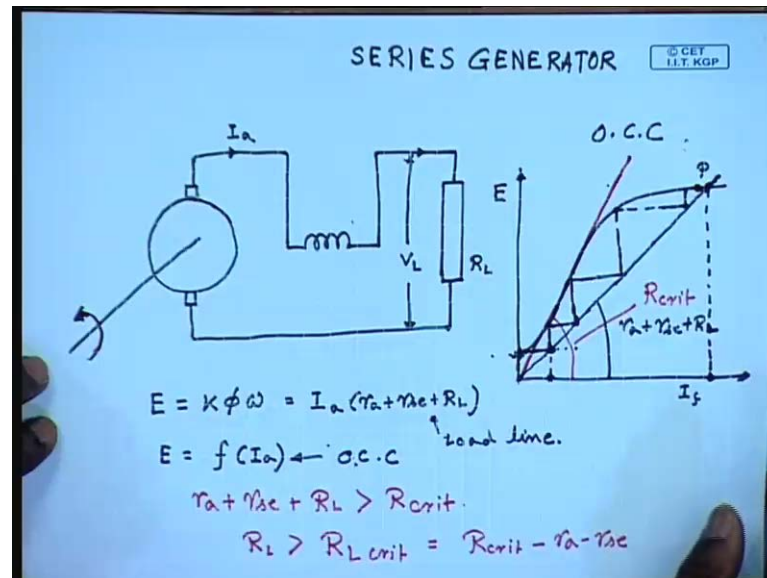 SERIES GENERATOR
© CET
I.I.T. KGP
Ia
VL
RL
O.C.C
E
P
Rcrit
ra+rse+RL
If
E = Kφω = Ia(ra+rse+RL)
Load line.
E = f(Ia) ← O.C.C
ra+rse+RL > Rcrit.
RL > RL crit = Rcrit - ra - rse